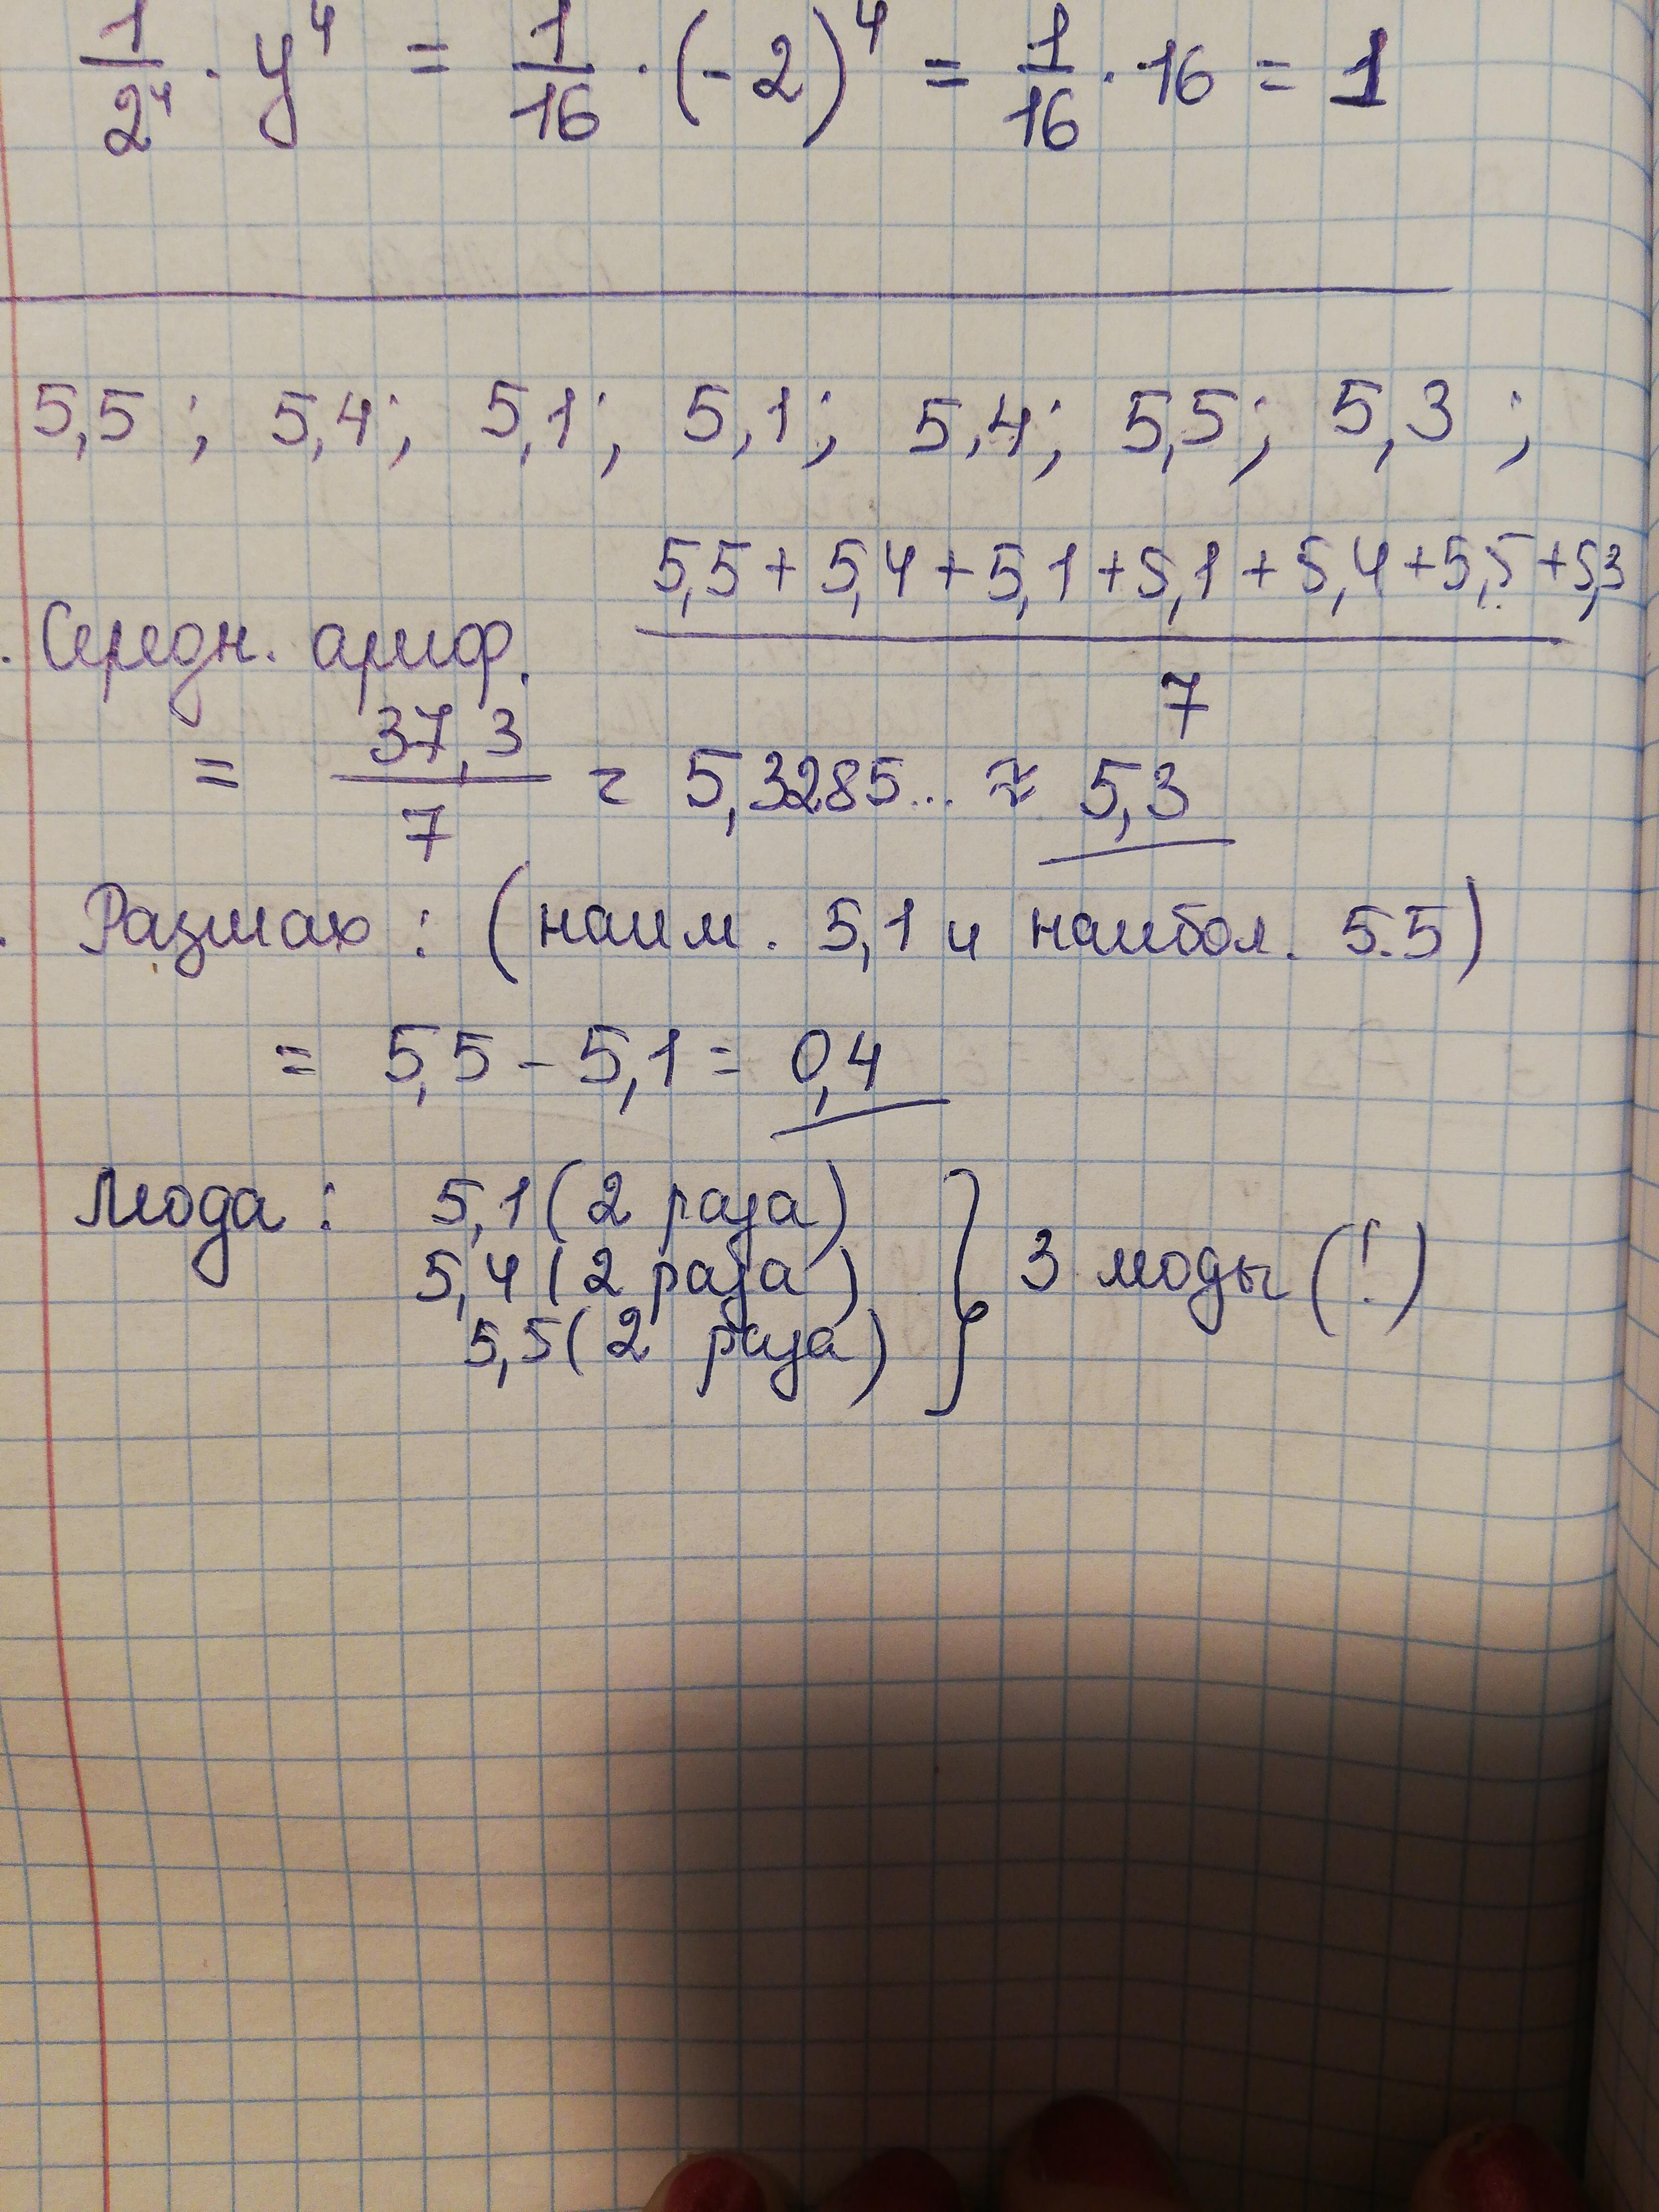 1/2⁴ · y⁴ = 1/16 · (-2)⁴ = 1/16 · 16 = 1
5,5 ; 5,4; 5,1; 5,1; 5,4; 5,5; 5,3 ;
. Средн. ариф. (5,5 + 5,4 + 5,1 + 5,1 + 5,4 + 5,5 + 5,3)/7
= 37,3/7 = 5,3285... ≈ 5,3
. Размах : (наим. 5,1 и наибол. 5.5)
= 5,5 - 5,1 = 0,4
Мода : 5,1 (2 раза)
5,4 (2 раза) } 3 моды (!)
5,5 (2 раза)